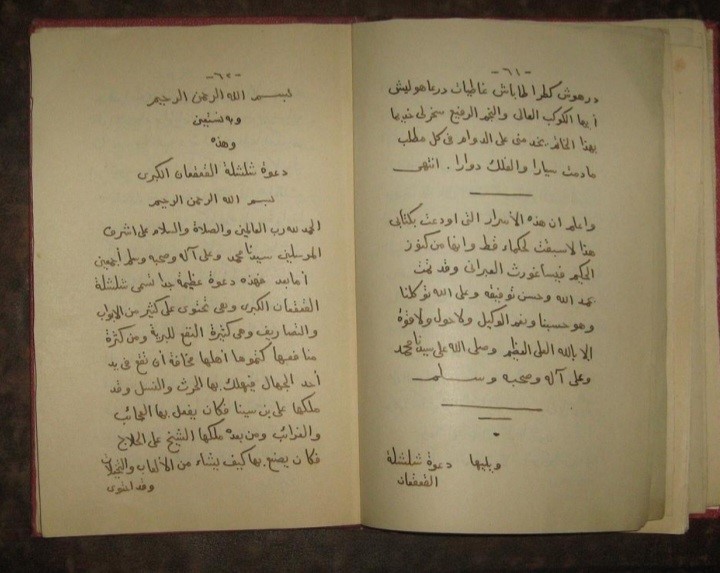 -٦١-
درهوش كطر الماباش غالميات درعاهوليش
أيها الكوكب العالى والنجم الرفيع سخر لى خديما
بهذا الخاتم يخدمنى على الدوام فى كل مطلب
مادمت سيارا والفلك دوارا . انتهى
واعلم ان هذه الأسرار التى اودعت بكتابى
هذا لاسبقت لحكماء قط وانها من كنوز
الحكيم فيساغورث العبرانى وقد تمت
بحمد الله وحسن توفيقه وعلى الله توكلنا
وهو حسبنا ونعم الوكيل ولاحول ولاقوة
الا بالله العلى العظيم وصلى الله على سيدنا محمد
وعلى آله وصحبه وسلم
ويليها دعوة شلشلة
القعقعان
-٦٢-
بسم الله الرحمن الرحيم
وبه نستعين
وهذه
دعوة شلشلة القعقعان الكبرى
بسم الله الرحمن الرحيم
الحمد لله رب العالمين والصلاة والسلام على اشرف
المرسلين سيدنا محمد وعلى آله وصحبه وسلم أجمعين
أما بعد فهذه دعوة عظيمة جدا تسمى شلشلة
القعقعان الكبرى وهى تحتوى على كثير من الابواب
والتصاريف وهى كثيرة النفع للبرية ومن كثرة
منافعها كتموها أهلها مخافة أن تقع فى يد
أحد الجهال فيهلك بها الحرث والنسل وقد
ملكها على بن سينا فكان يفعل بها العجائب
والغرائب ومن بعده ملكها الشيخ على الحلاج
فكان يصنع بها كيف يشاء من الألعاب والتخيلات
وقد احتوى